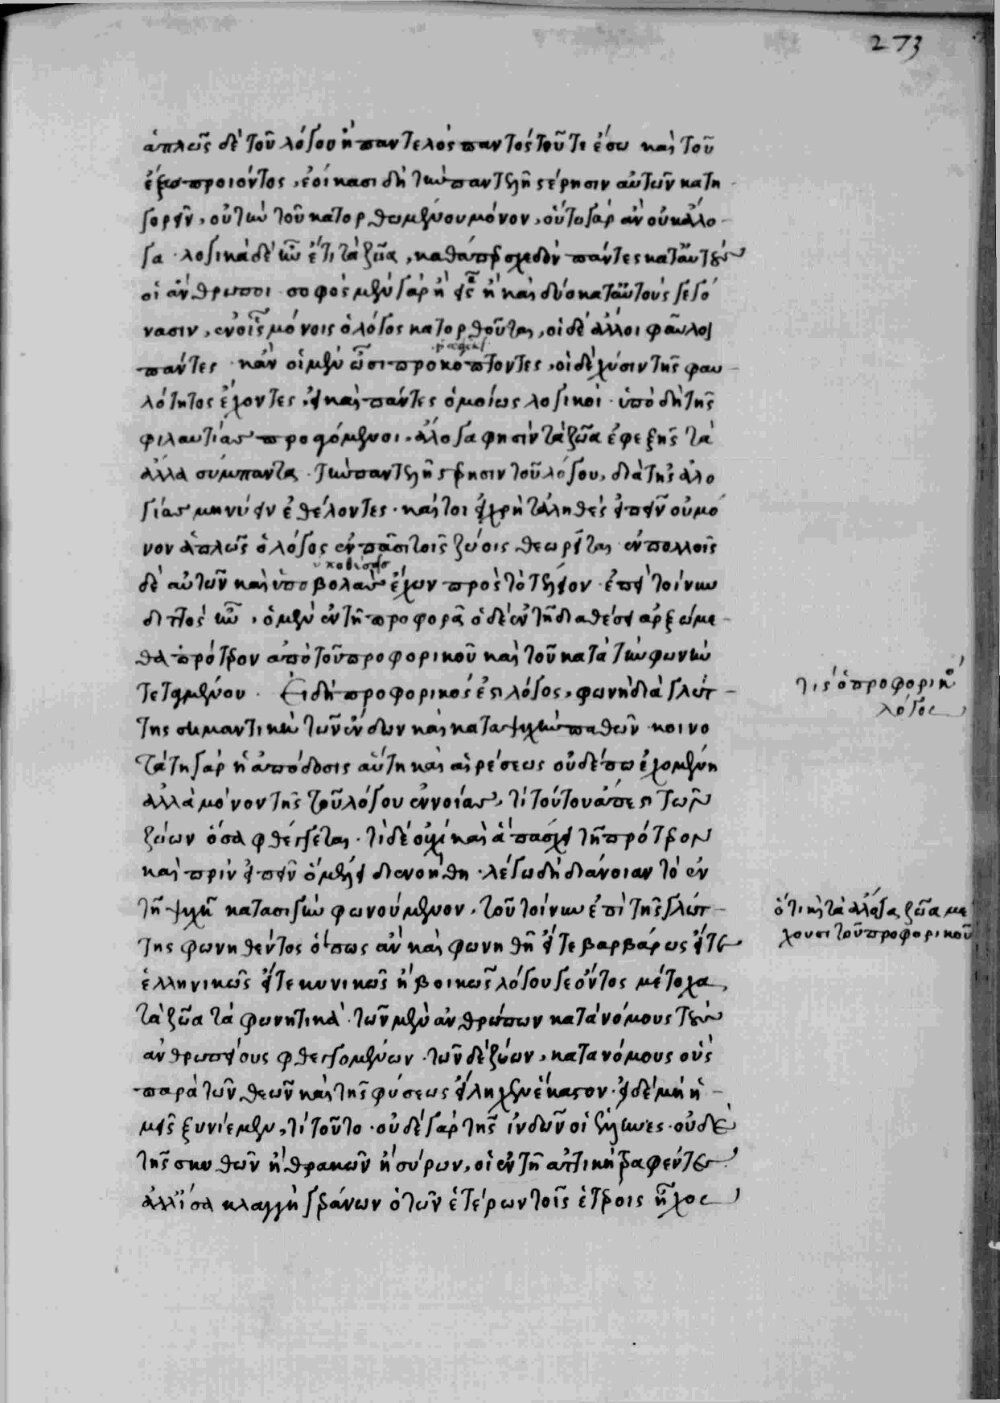 273
ἁπλῶς δὲ τοῦ λόγου ἢ παντελὸς παντὸς τοῦ τι ἔσω καὶ τοῦ
ἔξω προιόντος, ἐοίκασι δὴ τὴν παντελῆ στέρησιν αὐτῶν κατη
γορεῖν, οὐ τὴν τοῦ κατορθωμένου μόνον, οὕτω γὰρ ἂν οὐκ ἄλο
γα· λογικὰ δὲ ἦν ἔτι τὰ ζῶα, καθάπερ σχεδὸν πάντες κατ' αὐτοὺς
οἱ ἄνθρωποι· σοφὸς μὲν γὰρ ἢ εἷς ἢ καὶ δύο κατ' αὐτοὺς γεγό
νασιν, ἐν οἷς μόνοις ὁ λόγος κατορθοῦται, οἱ δὲ ἄλλοι φαῦλοι
πάντες· κἂν οἱ μὲν ὦσι προκόπτοντες, οἱ δὲ χύσιν τῆς φαυ
λότητος ἔχοντες, εἰ καὶ πάντες ὁμοίως λογικοί· ὑπὸ δὴ τῆς
φιλαυτίας προαγόμενοι, ἄλογα φησὶν τὰ ζῶα ἐφεξῆς τὰ
ἄλλα σύμπαντα· τὴν παντελῆ στέρησιν τοῦ λόγου, διὰ τῆς ἀλο
γίας μηνύειν ἐθέλοντες· καίτοι εἰ χρὴ τἀληθὲς εἰπεῖν οὐ μό
νον ἁπλῶς ὁ λόγος ἐν πᾶσι τοῖς ζώοις θεωρεῖται ἐν πολλοῖς
δὲ αὐτῶν καὶ ὑποβολὰς ἔχων πρὸς τὸ τέλειον· ἐπεὶ τοίνυν
διττὸς ἦν, ὁ μὲν ἐν τῇ προφορᾷ ὁ δὲ ἐν τῇ διαθέσει ἀρξώμε
θα πρότερον ἀπὸ τοῦ προφορικοῦ καὶ τοῦ κατὰ τὴν φωνὴν
τεταγμένου. Εἰ δὴ προφορικός ἐστι λόγος, φωνὴ διὰ γλώτ
της σημαντικὴ τῶν ἔνδον καὶ κατὰ ψυχὴν παθῶν· κοινο
τάτη γὰρ ἡ ἀπόδοσις αὕτη καὶ αἱρέσεως οὐδέπω ἐχομένη
ἀλλὰ μόνον τῆς τοῦ λόγου ἐννοίας, τί τούτου ἄπεστι τῶν
ζώων ὅσα φθέγγεται· τί δὲ οὐχὶ καὶ ἃ πάσχει τῇ πρότερον
καὶ πρὶν εἰπεῖν ὃ μέλλει διενοήθη· λέγω δὴ διάνοιαν τὸ ἐν
τῇ ψυχῇ κατὰ σιγὴν φωνούμενον, τοῦ τοίνυν ἐπὶ τῆς γλώτ
της φωνηθέντος ὅπως ἂν καὶ φωνηθῇ εἴτε βαρβάρως εἴτε
ἑλληνικῶς εἴτε κυνικῶς ἢ βοικῶς λόγου γε ὄντος μέτοχα,
τὰ ζῶα τὰ φωνητικά· τῶν μὲν ἀνθρώπων κατὰ νόμους τοὺς
ἀνθρωπείους φθεγγομένων· τῶν δὲ ζώων, κατὰ νόμους οὓς
παρὰ τῶν θεῶν καὶ τῆς φύσεως εἴληχεν ἕκαστον· εἰ δὲ μὴ ἡ
μεῖς ξυνίεμεν, τί τοῦτο· οὐδὲ γὰρ τῆς ἰνδῶν οἱ ἕλληνες· οὐδὲ
τῆς σκυθῶν ἢ θρακῶν ἢ σύρων, οἱ ἐν τῇ ἀττικῇ τραφέντες·
ἀλλ' ἴσα κλαγγῇ γεράνων ὁ τῶν ἑτέρων τοῖς ἑτέροις ἦχος
τίς ὁ προφορικὸς
λόγος
ὅτι καὶ τὰ ἄλογα ζῶα με
τέχουσι τοῦ προφορικοῦ